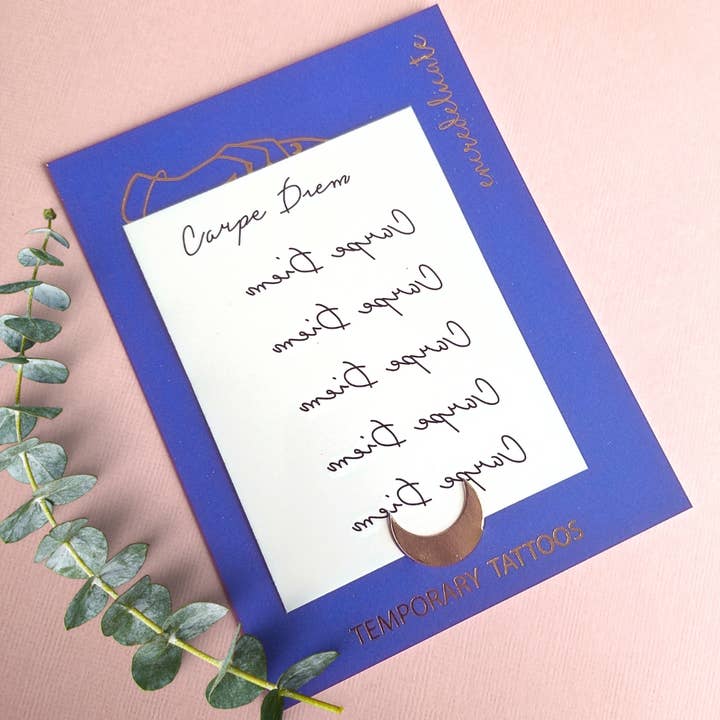 enredelicate
Carpe Diem
Carpe Diem
Carpe Diem
Carpe Diem
Carpe Diem
Carpe Diem
TEMPORARY TATTOOS